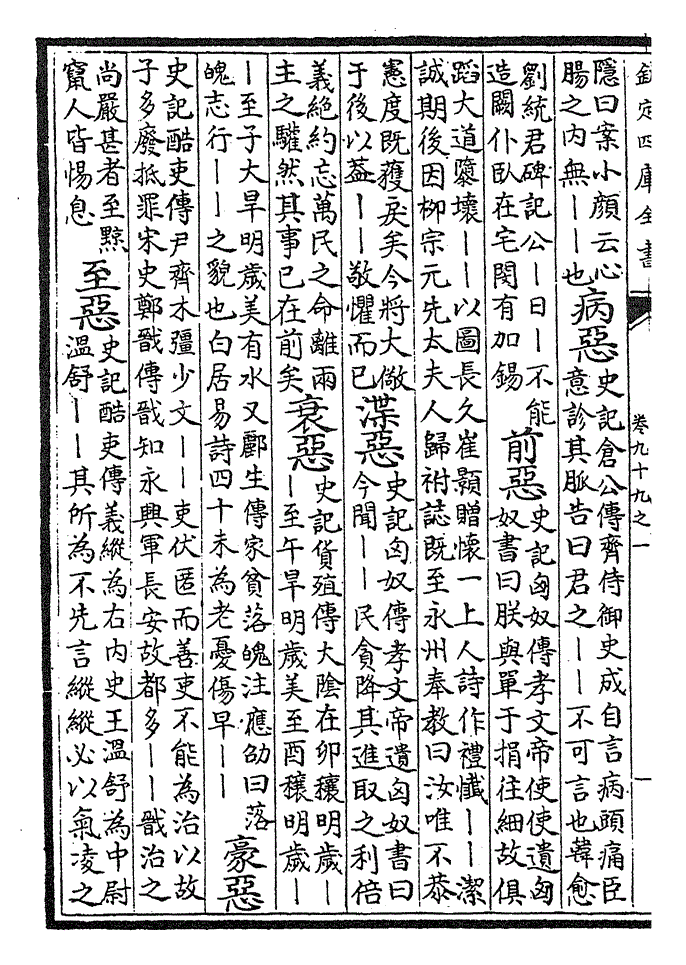 欽定四庫全書
卷九十九之一
一
隱曰案小顔云心
腸之内無——也
病惡
史記倉公傳齊侍御史成自言病頭痛臣
意診其脈告曰君之——不可言也韓愈
劉統君碑記公—日—不能
造闕仆臥在宅閔有加錫
前惡
史記匈奴傳孝文帝使使遺匈
奴書曰朕與單于捐往細故俱
蹈大道隳壞——以圖長久崔顥贈懷一上人詩作禮懺——潔
誠期後因柳宗元先太夫人歸祔誌既至永州奉教曰汝唯不恭
憲度既獲戾矣今將大儆
于後以葢——敬懼而已
渫惡
史記匈奴傳孝文帝遺匈奴書曰
今聞——民貪降其進取之利倍
義絶約忘萬民之命離兩
主之驩然其事已在前矣
衰惡
史記貨殖傳大陰在卯穰明歲—
—至午旱明歲美至酉穰明歲—
—至子大旱明歲美有水又酈生傳家貧落魄注應劭曰落
魄志行——之貌也白居易詩四十未為老憂傷早——
豪惡
史記酷吏傳尹齊木彊少文——吏伏匿而善吏不能為治以故
子多廢抵罪宋史鄭戩傳戩知永興軍長安故都多——戩治之
尚嚴甚者至黥
竄人皆惕息
至惡
史記酷吏傳義縱為右内史王溫舒為中尉
溫舒——其所為不先言縱縱必以氣凌之